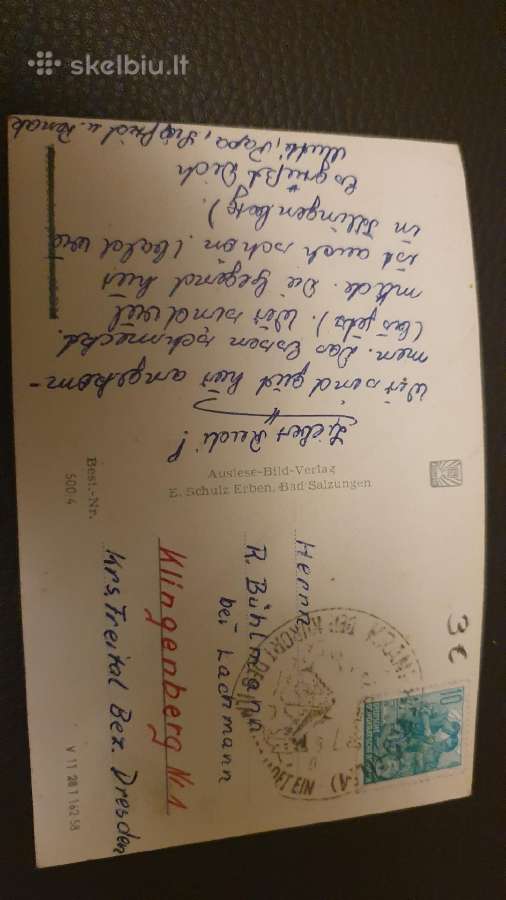 skelbiu.lt
Lieber Rudi!
Wir sind gut hier angekom-
men. Das Essen schmeckt.
(bis jetzt). Wir sind
müde. Die Gegend hier
ist auch schon (bald wie
in
Es grüßt Dich
Mutti, Papa, Siegfried u. Renate
Auslese-Bild-Verlag
E. Schulz Erben, Bad Salzungen
Best.-Nr.
3€
10
DER KURORT
EIN
Herrn
R. Bühlmann
bei Lachmann
Klingenberg Nr. 1
Krs. Freital Bez. Dresden
V 11 28 1 162 58